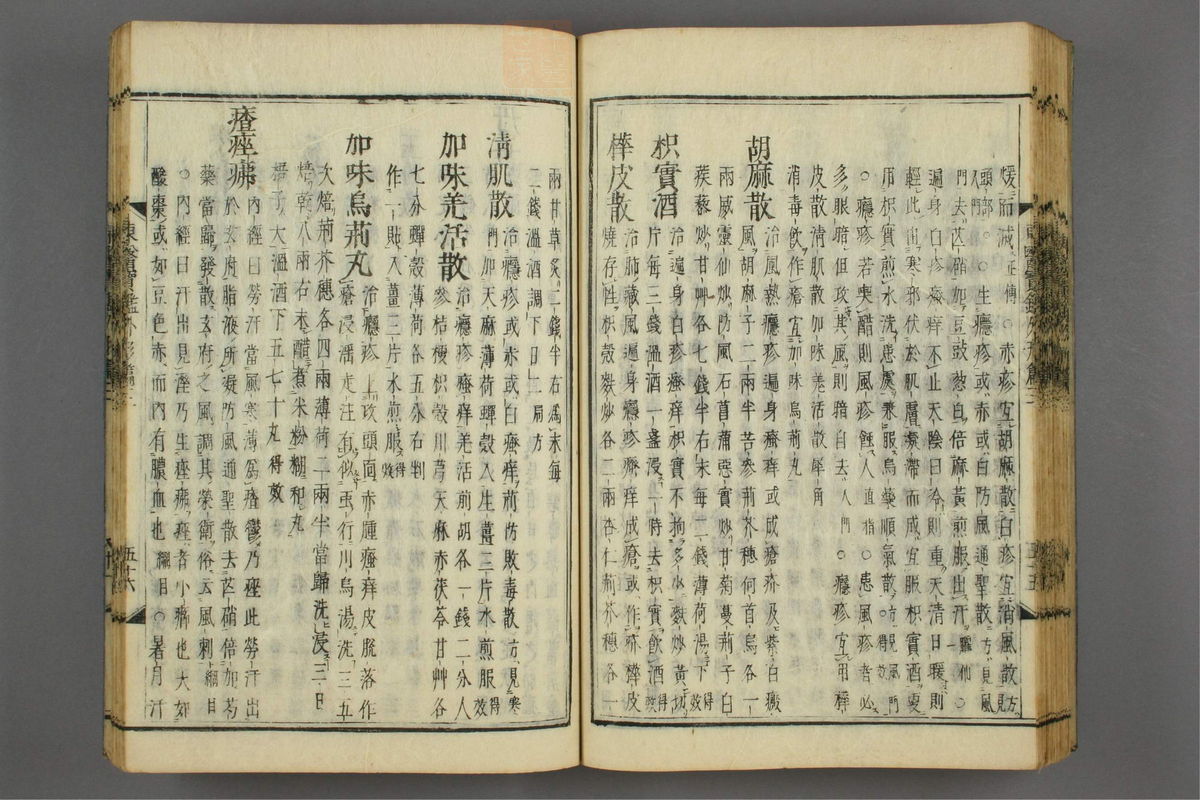 煖而滅正傳○赤疹宜胡麻散白疹宜消風散方見
頭部入門○生癮疹或赤或白防風通聖散方見風
門去芒硝加豆豉葱白倍麻黃煎服出汗○
遍身白疹瘙痒不止天陰日冷則重天清日暖則
輕此由寒邪伏於肌膚凝滯而成宜服枳實酒更
用枳實煎水洗患處兼服烏藥順氣散方見風門得效
○癮疹若喫醋則風疹蝕人直指○患風疹者必
多眼暗但攻其風則暗自去入門○癮疹宜用樺
皮散清肌散加味羌活散犀角
消毒飮作瘡宜加味烏荊丸
胡麻散 治風熱癮疹遍身瘙痒或成瘡疥及紫白癜
風胡麻子二兩半苦參荊芥穗何首烏各一
兩威靈仙炒防風石菖蒲惡實炒甘菊蔓荊子白
蒺藜炒甘艸各七錢半右末每二錢薄荷湯下得效
枳實酒 治遍身白疹瘙痒枳實不拘多少麩炒黃切
片每三錢溫酒一盞浸一時去枳實飮酒得效
樺皮散 治肺藏風遍身癮疹瘙痒成瘡或作疥樺皮
燒存性枳殼麩炒各二兩杏仁荊芥穗各一
兩甘草炙二錢半右爲末每
二錢溫酒調下日二局方
清肌散 治癮疹或赤或白瘙痒荊防敗毒散方見寒
門加天麻薄荷蟬殼入生薑三片水煎服得效
加味羌活散 治癮疹瘙痒羌活前胡各一錢二分人
參桔梗枳殼川芎天麻赤茯苓甘艸各
七分蟬殼薄荷各五分右剉
作一貼入薑三片水煎服得效
加味烏荊丸 治癮疹上攻頭面赤腫瘙痒皮脫落作
瘡浸淫走注有似虫行川烏湯洗三五
次焙荊芥穗各四兩薄荷二兩半當歸洗浸三日
焙乾八兩右末醋煮米粉糊和丸
梧子大溫酒下五七十丸得效
瘡痤疿 內經曰勞汗當風寒薄爲瘡鬱乃痤此勞汗出
於玄府脂液所凝防風通聖散去芒硝倍加芍
藥當歸發散玄府之風調其榮衛俗云風刺綱目
○內經曰汗出見濕乃生痤疿痤者小癤也大如
酸棗或如豆色赤而內有膿血也綱目○暑月汗
五十六